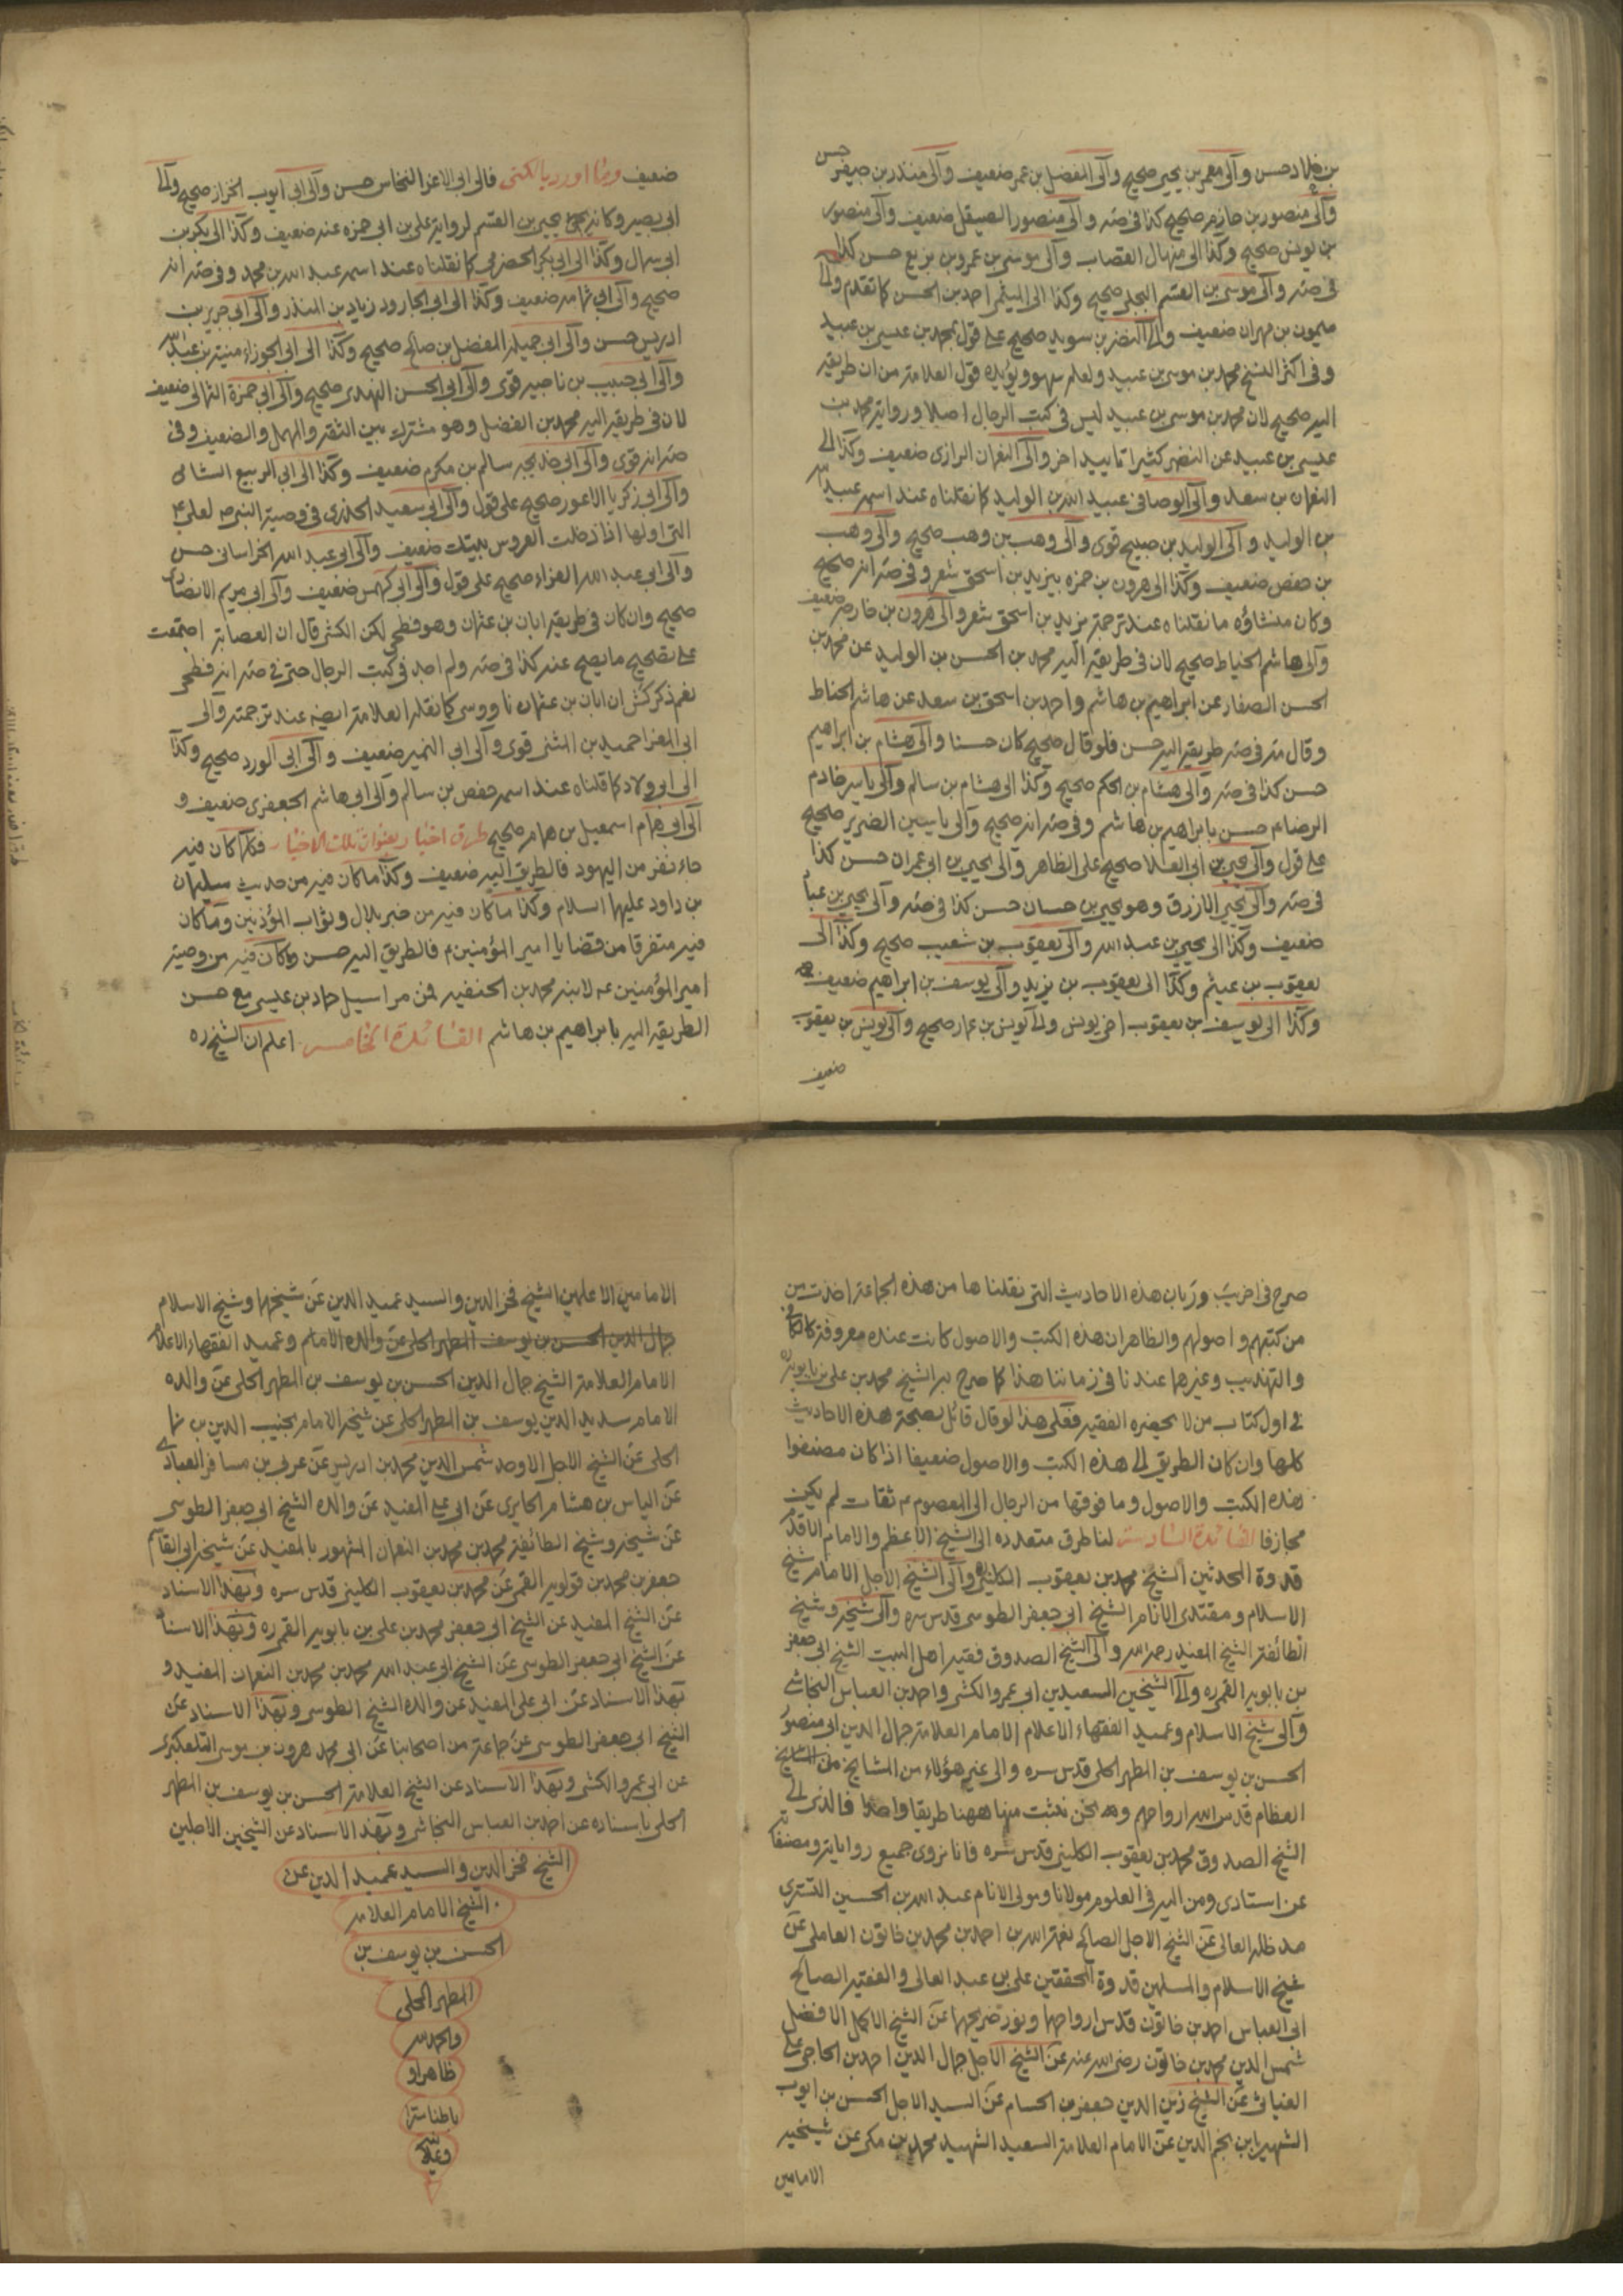 بن خلاد حسن وآلى معمر بن يحيى صحيح وآلى المفضل بن عمر ضعيف وآلى منذر بن جيفر حسن
وآلى منصور بن حازم صحيح كذا في صه وآلى منصور الصيقل ضعيف وآلى منصور
بن يونس صحيح وكذا الى منهال القصاب وآلى موسى بن عمر بن بزيع حسن كذا
في صه وآلى موسى بن القسم البجلي صحيح وكذا الى الميثمي احمد بن الحسن كما تقدم والى
ميمون بن مهران ضعيف والى النضر بن سويد صحيح على قول بمحمد بن عيسى بن عبيد
وفي اكثر النسخ محمد بن موسى بن عبيد ولعله سهو ويؤيده قول العلامة من ان طريقه
اليه صحيح لان محمد بن موسى بن عبيد ليس في كتب الرجال اصلا ورواية محمد بن
عيسى بن عبيد عن النضر كثيرا تاييد اخر وآلى النعمان الرازى ضعيف وكذا الى
النعمان بن سعد وآلى الوصافي عبيد الله بن الوليد كما نقلناه عند اسمه عبيد الله
بن الوليد وآلى الوليد بن صبيح قوى وآلى وهب بن وهب صحيح وآلى وهب
بن حفص ضعيف وكذا الى هرون بن حمزه بيزيد بن اسحق شعر وفي صه انه صحيح
وكان منشاؤه ما نقلناه عند ترجمة يزيد بن اسحق شعر وآلى هرون بن خارجه ضعيف
وآلى هاشم الحناط صحيح لان في طريقه اليه محمد بن الحسن بن الوليد عن محمد بن
الحسن الصفار عن ابراهيم بن هاشم واحمد بن اسحق بن سعد عن هاشم الحناط
وقال في صه طريقه اليه حسن فلو قال صحيح كان حسنا وآلى هشام بن ابراهيم
حسن كذا في صه وآلى هشام بن الحكم صحيح وكذا الى هشام بن سالم وآلى ياسر خادم
الرضا ع حسن بابراهيم بن هاشم وفي صه انه صحيح وآلى ياسين الضرير صحيح
على قول وآلى يحيى بن ابى العلا صحيح على الظاهر وآلى يحيى بن ابى عمران حسن كذا
في صه وآلى يحيى الازرق وهو يحيى بن حسان حسن كذا في صه وآلى يحيى بن عبا
ضعيف وكذا الى يحيى بن عبد الله وآلى يعقوب بن شعيب صحيح وكذا الى
يعقوب بن عيثم وكذا الى يعقوب بن يزيد وآلى يوسف بن ابراهيم ضعيف
وكذا الى يوسف بن يعقوب اخى يونس والى يونس بن عمار صحيح وآلى يونس بن يعقوب
ضعيف
ضعيف وما اورد بالكنى فالى ابى الاعز النخاس حسن وآلى ابى ايوب الخزاز صحيح وآلى
ابى بصير وكانه يحيى بن القسم لرواية على بن ابى حمزه عنه ضعيف وكذا الى بكر بن
ابى سمال وكذا الى ابى بكر الحضرمى كما نقلناه عند اسمه عبد الله بن محمد وفي صه انه
صحيح وآلى ابى ثمامه ضعيف وكذا الى ابى الجارود زياد بن المنذر وآلى ابى جرير بن
ادريس حسن وآلى ابى جميله المفضل بن صالح صحيح وكذا الى ابى الجوزاء منبه بن عبد الله
وآلى ابى حبيب بن ناجيه قوى وآلى ابى الحسن النهدى صحيح وآلى ابى حمزة الثمالى ضعيف
لان في طريقه اليه محمد بن الفضل وهو مشترك بين الثقه والمهمل والضعيف وفي
صه انه قوى وآلى ابى خديجه سالم بن مكرم ضعيف وكذا الى ابى الربيع الشامى
وآلى ابى زكريا الاعور صحيح على قول وآلى ابى سعيد الخدرى في وصية النبى ص لعلى ع
التى اولها اذا دخلت العروس بيتك ضعيف وآلى ابى عبد الله الخراسانى حسن
وآلى ابى عبد الله الفراء صحيح على قول وآلى ابى كهمس ضعيف وآلى ابى مريم الانصارى
صحيح وان كان في طريقه ابان بن عثمان وهو فطحى لكن الكشى قال ان العصابة اجتمعت
على تصحيح ما يصح عنه كذا في صه ولم اجد في كتب الرجال حتى في صه انه فطحى
نعم ذكر كش ان ابان بن عثمان ناووسى كما نقله العلامة ايضه عند ترجمته وآلى
ابى المغرا حميد بن المثنى قوى وآلى ابى النمير ضعيف وآلى ابى الورد صحيح وكذا
الى ابى ولاد كما قلناه عند اسمه حفص بن سالم وآلى ابى هاشم الجعفرى ضعيف و
آلى ابى همام اسمعيل بن همام صحيح طرق اخبار بعنوان تلك الاخبار فكلما كان فيه
جاء نفر من اليهود فالطريق اليه ضعيف وكذا ما كان فيه من حديث سليمان
بن داود عليهما السلام وكذا ما كان فيه من خبر بلال وثواب المؤذنين وما كان
فيه متفرقا من قضايا امير المؤمنين ع فالطريق اليه حسن وما كان فيه من وصية
امير المؤمنين ع لابنه محمد بن الحنفيه فمن مراسيل حماد بن عيسى مع حسن
الطريقه اليه بابراهيم بن هاشم الفائدة الخامسه اعلم ان الشيخ ره
صرح في اخر يب وزباب هذه الاحاديث التى نقلناها من هذه الجماعة اخذت من
من كتبهم واصولهم والظاهر ان هذه الكتب والاصول كانت عنده معروفة كالكافى
والتهذيب وغيرها عندنا في زماننا هذا كما صرح به الشيخ محمد بن على بن بابويه
في اول كتاب من لا يحضره الفقيه فعلى هذا لو قال قائل بصحة هذه الاحاديث
كلها وان كان الطريق الى هذه الكتب والاصول ضعيفا اذا كان مصنفوا
هذه الكتب والاصول وما فوقها من الرجال الى المعصوم ع ثقات لم يكن
مجازفا الفائدة السادسه لنا طرق متعدده الى الشيخ الاعظم والامام الاقدم
قدوة المحدثين الشيخ محمد بن يعقوب الكلينى وآلى الشيخ الاجل الامام شيخ
الاسلام ومقتدى الانام الشيخ ابى جعفر الطوسى قدس سره وآلى شيخه وشيخ
الطائفة الشيخ المفيد رحمه الله وآلى الشيخ الصدوق فقيه اهل البيت الشيخ ابى جعفر
بن بابويه القمى ره والى الشيخين السعيدين ابى عمرو الكشى واحمد بن العباس النجاشى
وآلى شيخ الاسلام وعميد الفقهاء الاعلام الامام العلامة جمال الدين ابى منصور
الحسن بن يوسف بن المطهر الحلى قدس سره والى غير هؤلاء من المشايخ
العظام قدس الله ارواحهم ونحن نثبت منها ههنا طريقا واحدا فالذى الى
الشيخ الصدوق محمد بن يعقوب الكلينى قدس سره فانا نروى جميع رواياته ومصنفاته
عن استادى ومن اليه في العلوم مولانا ومولى الانام عبد الله بن الحسين التسترى
مد ظله العالى عن الشيخ الاجل الصالح نعمة الله بن احمد بن محمد بن خاتون العاملى عن
شيخ الاسلام والمسلمين قدوة المحققين على بن عبد العالى والفقيه الصالح
ابى العباس احمد بن خاتون قدس ارواحهما ونور ضريحهما عن الشيخ الاكمل الافضل
شمس الدين محمد بن خاتون رضى الله عنه عن الشيخ الاجل جمال الدين احمد بن الحاجى على
العيناثى عن الشيخ زين الدين جعفر بن الحسام عن السيد الاجل الحسن بن ايوب
الشهير بابن نجم الدين عن الامام العلامة السعيد الشهيد محمد بن مكى عن شيخيه
الامامين
الامامين الاعلمين الشيخ فخر الدين والسيد عميد الدين عن شيخهما وشيخ الاسلام
جمال الدين الحسن بن يوسف المطهر الحلى عن والده الامام وعميد الفقهاء الاعلام
الامام العلامة الشيخ جمال الدين الحسن بن يوسف بن المطهر الحلى عن والده
الامام سديد الدين يوسف بن المطهر الحلى عن شيخه الامام نجيب الدين بن نما
الحلى عن الشيخ الاجل الاوحد شمس الدين محمد بن ادريس عن عربى بن مسافر العبادى
عن الياس بن هشام الحايرى عن ابى على المفيد عن والده الشيخ ابى جعفر الطوسى
عن شيخه وشيخ الطائفة محمد بن محمد بن النعمان المشهور بالمفيد عن شيخه ابى القاسم
جعفر بن محمد بن قولويه القمى عن محمد بن يعقوب الكلينى قدس سره وبهذا الاسناد
عن الشيخ المفيد عن الشيخ ابى جعفر محمد بن على بن بابويه القمى ره وبهذا الاسناد
عن الشيخ ابى جعفر الطوسى عن الشيخ ابى عبد الله محمد بن محمد بن النعمان المفيد و
بهذا الاسناد عن ابى على المفيد عن والده الشيخ الطوسى وبهذا الاسناد عن
الشيخ ابى جعفر الطوسى عن جماعة من اصحابنا عن ابى محمد هرون بن موسى التلعكبرى
عن ابى عمرو الكشى وبهذا الاسناد عن الشيخ العلامة الحسن بن يوسف بن المطهر
الحلى باسناده عن احمد بن العباس النجاشى وبهذا الاسناد عن الشيخين الاجلين
الشيخ فخر الدين والسيد عميد الدين عن
الشيخ الامام العلامه
الحسن بن يوسف بن
المطهر الحلى
والحمد لله
ظاهرا و
باطنا